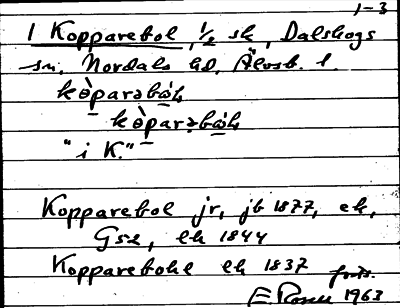 1-3
1 Kopparebol, 1/2 sk, Dalskogs
sn, Nordals hd, Älvsb. l.
"i K."
Kopparebol jr, jb 1877, ek,
Gse, ek 1844
Kopparebohl ek 1837 forts.
1963